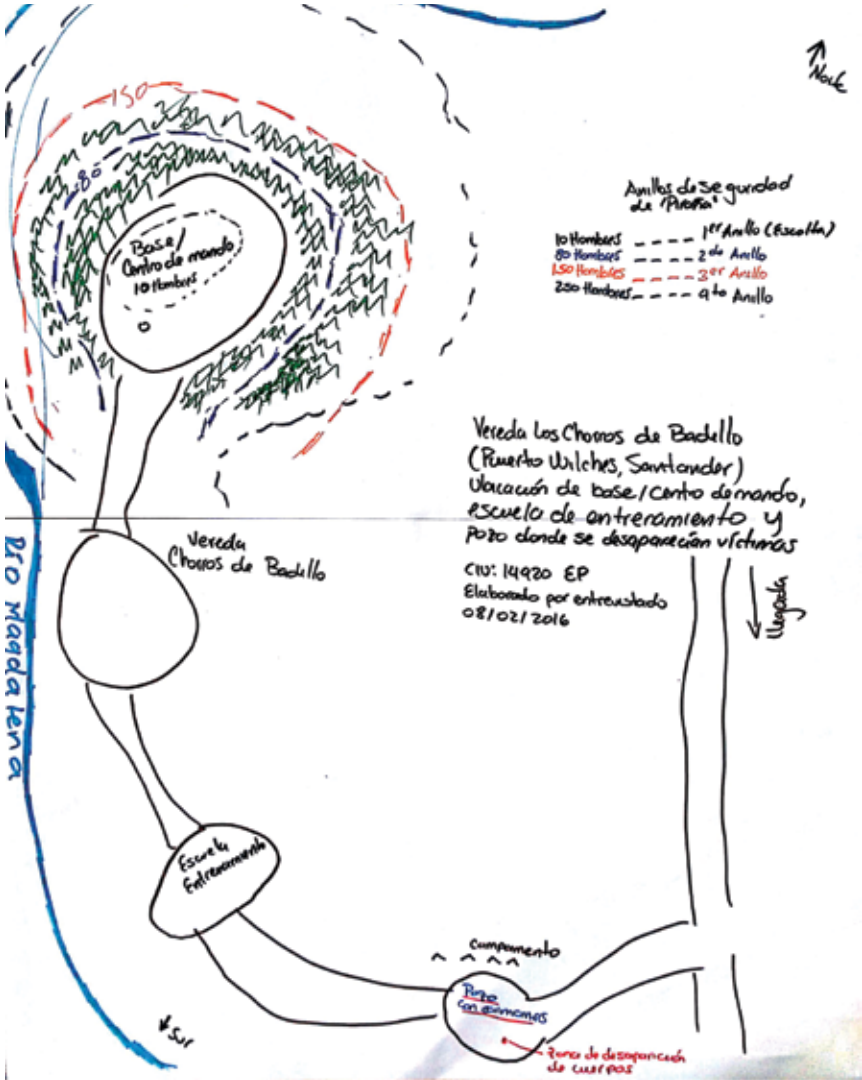 Norte
150
80
Base/
Centro de mando
10 Hombres
Anillos de seguridad
de "Piraña"
10 Hombres 1er Anillo (Escolta)
80 Hombres 2do Anillo
150 Hombres 3er Anillo
250 Hombres 4to Anillo
Vereda Los Chorros de Badillo
(Puerto Wilches, Santander)
Ubicación de base/centro de mando,
escuela de entrenamiento y
pozo donde se desaparecían víctimas
CIV: 14920 EP
Elaborado por entrevistado
08/02/2016
llegada
Vereda
Chorros de Badillo
Río Magdalena
Escuela
Entrenamiento
campamento
Pozo
con
zona de desaparición
de cuerpos
Sur